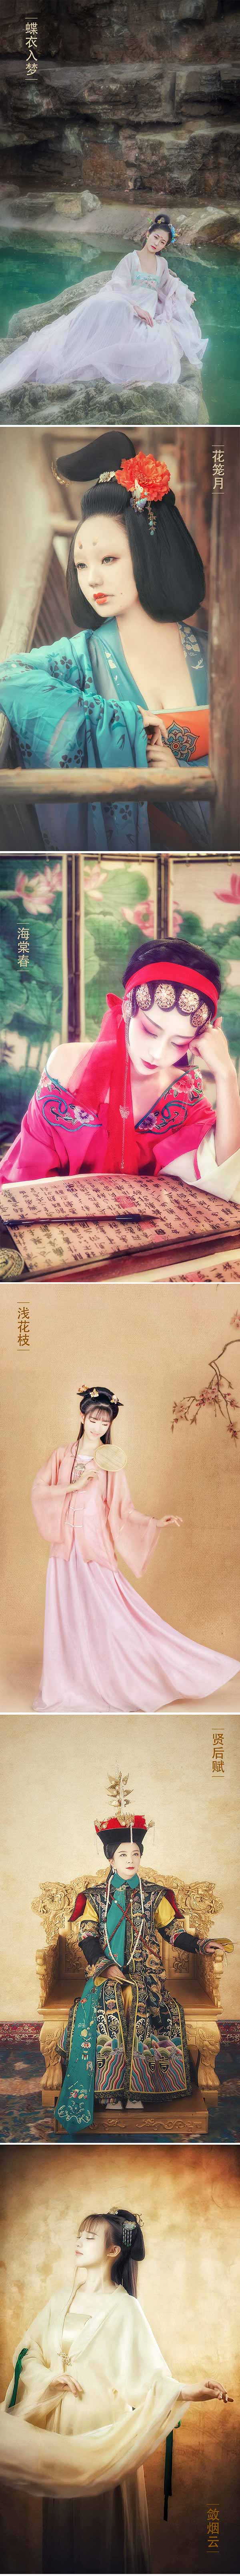 蝶衣入梦
花笼月
海棠春
浅花枝
贤后赋
敛烟云